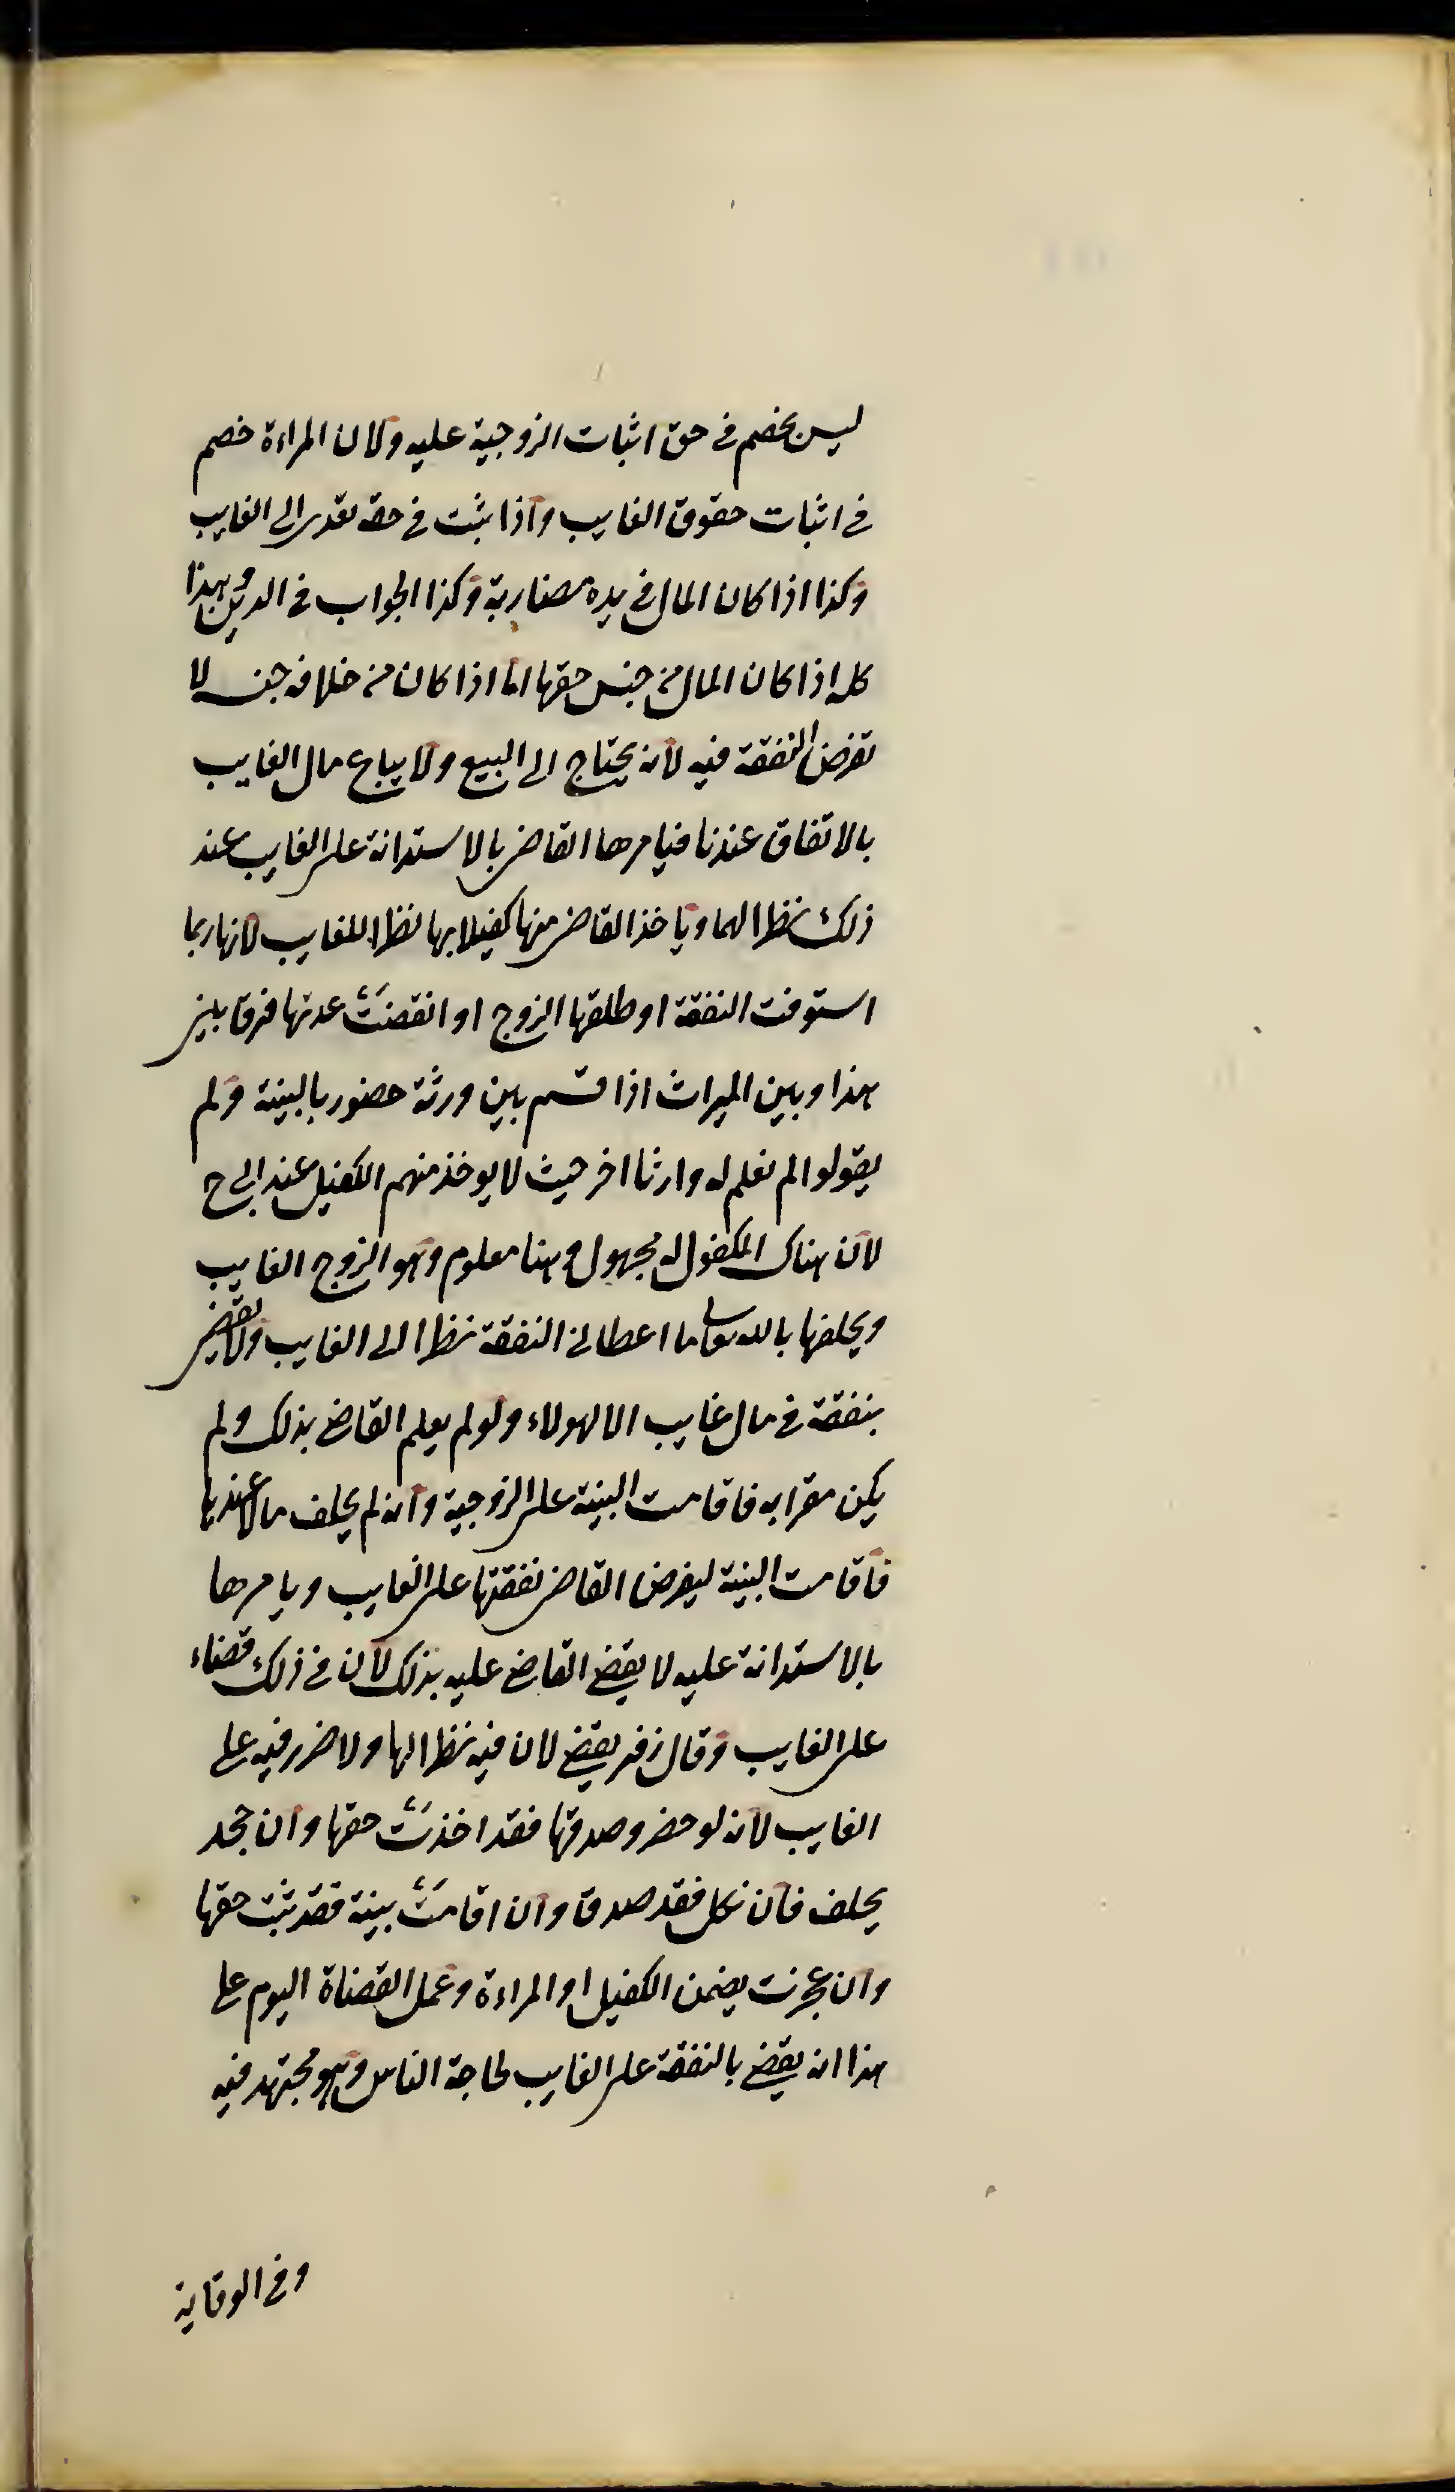 ليس بخصم في حق اثبات الزوجية عليه ولان المراءة خصم
في اثبات حقوق الغايب واذا ثبت في حقه تعدى الى الغايب
وكذا اذا كان المال في يده مضاربة وكذا الجواب في الدين وهذا
كله اذا كان المال من جنس حقها اما اذا كان من خلاف جنسه لا
تفرض النفقة فيه لانه يحتاج الى البيع ولا يباع مال الغايب
بالاتفاق عندنا فيامرها القاضى بالاستدانة على الغايب عند
ذلك نظرا لهما وياخذ القاضى منها كفيلا بها نظرا للغايب لانها ربما
استوفت النفقة او طلقها الزوج او انقضت عدتها فرقا بين
هذا وبين الميراث اذا قسم بين ورثة حضور بالبينة ولم
يقولوا لم نعلم له وارثا اخر حيث لا يوخذ منهم الكفيل عند ابى ح
لان هناك المكفول له مجهول وهنا معلوم وهو الزوج الغايب
ويحلفها بالله تعالى ما اعطانى النفقة نظرا الى الغايب ولا يقضى
بنفقة في مال غايب الا لهولاء ولو لم يعلم القاضى بذلك ولم
يكن مقرا به فاقامت البينة على الزوجية وانه لم يخلف مالا عندها
فاقامت البينة ليفرض القاضى نفقتها على الغايب ويامرها
بالاستدانة عليه لا يقضى القاضى عليه بذلك لان في ذلك قضاء
على الغايب وقال زفر يقضى لان فيه نظرا لها ولا ضرر فيه على
الغايب لانه لو حضر وصدقها فقد اخذت حقها وان جحد
يحلف فان نكل فقد صدق وان اقامت بينة فقد ثبت حقها
وان عجزت يضمن الكفيل او المراءة وعمل القضاة اليوم على
هذا انه يقضى بالنفقة على الغايب لحاجة الناس وهو مجتهد فيه
وفي الوقاية